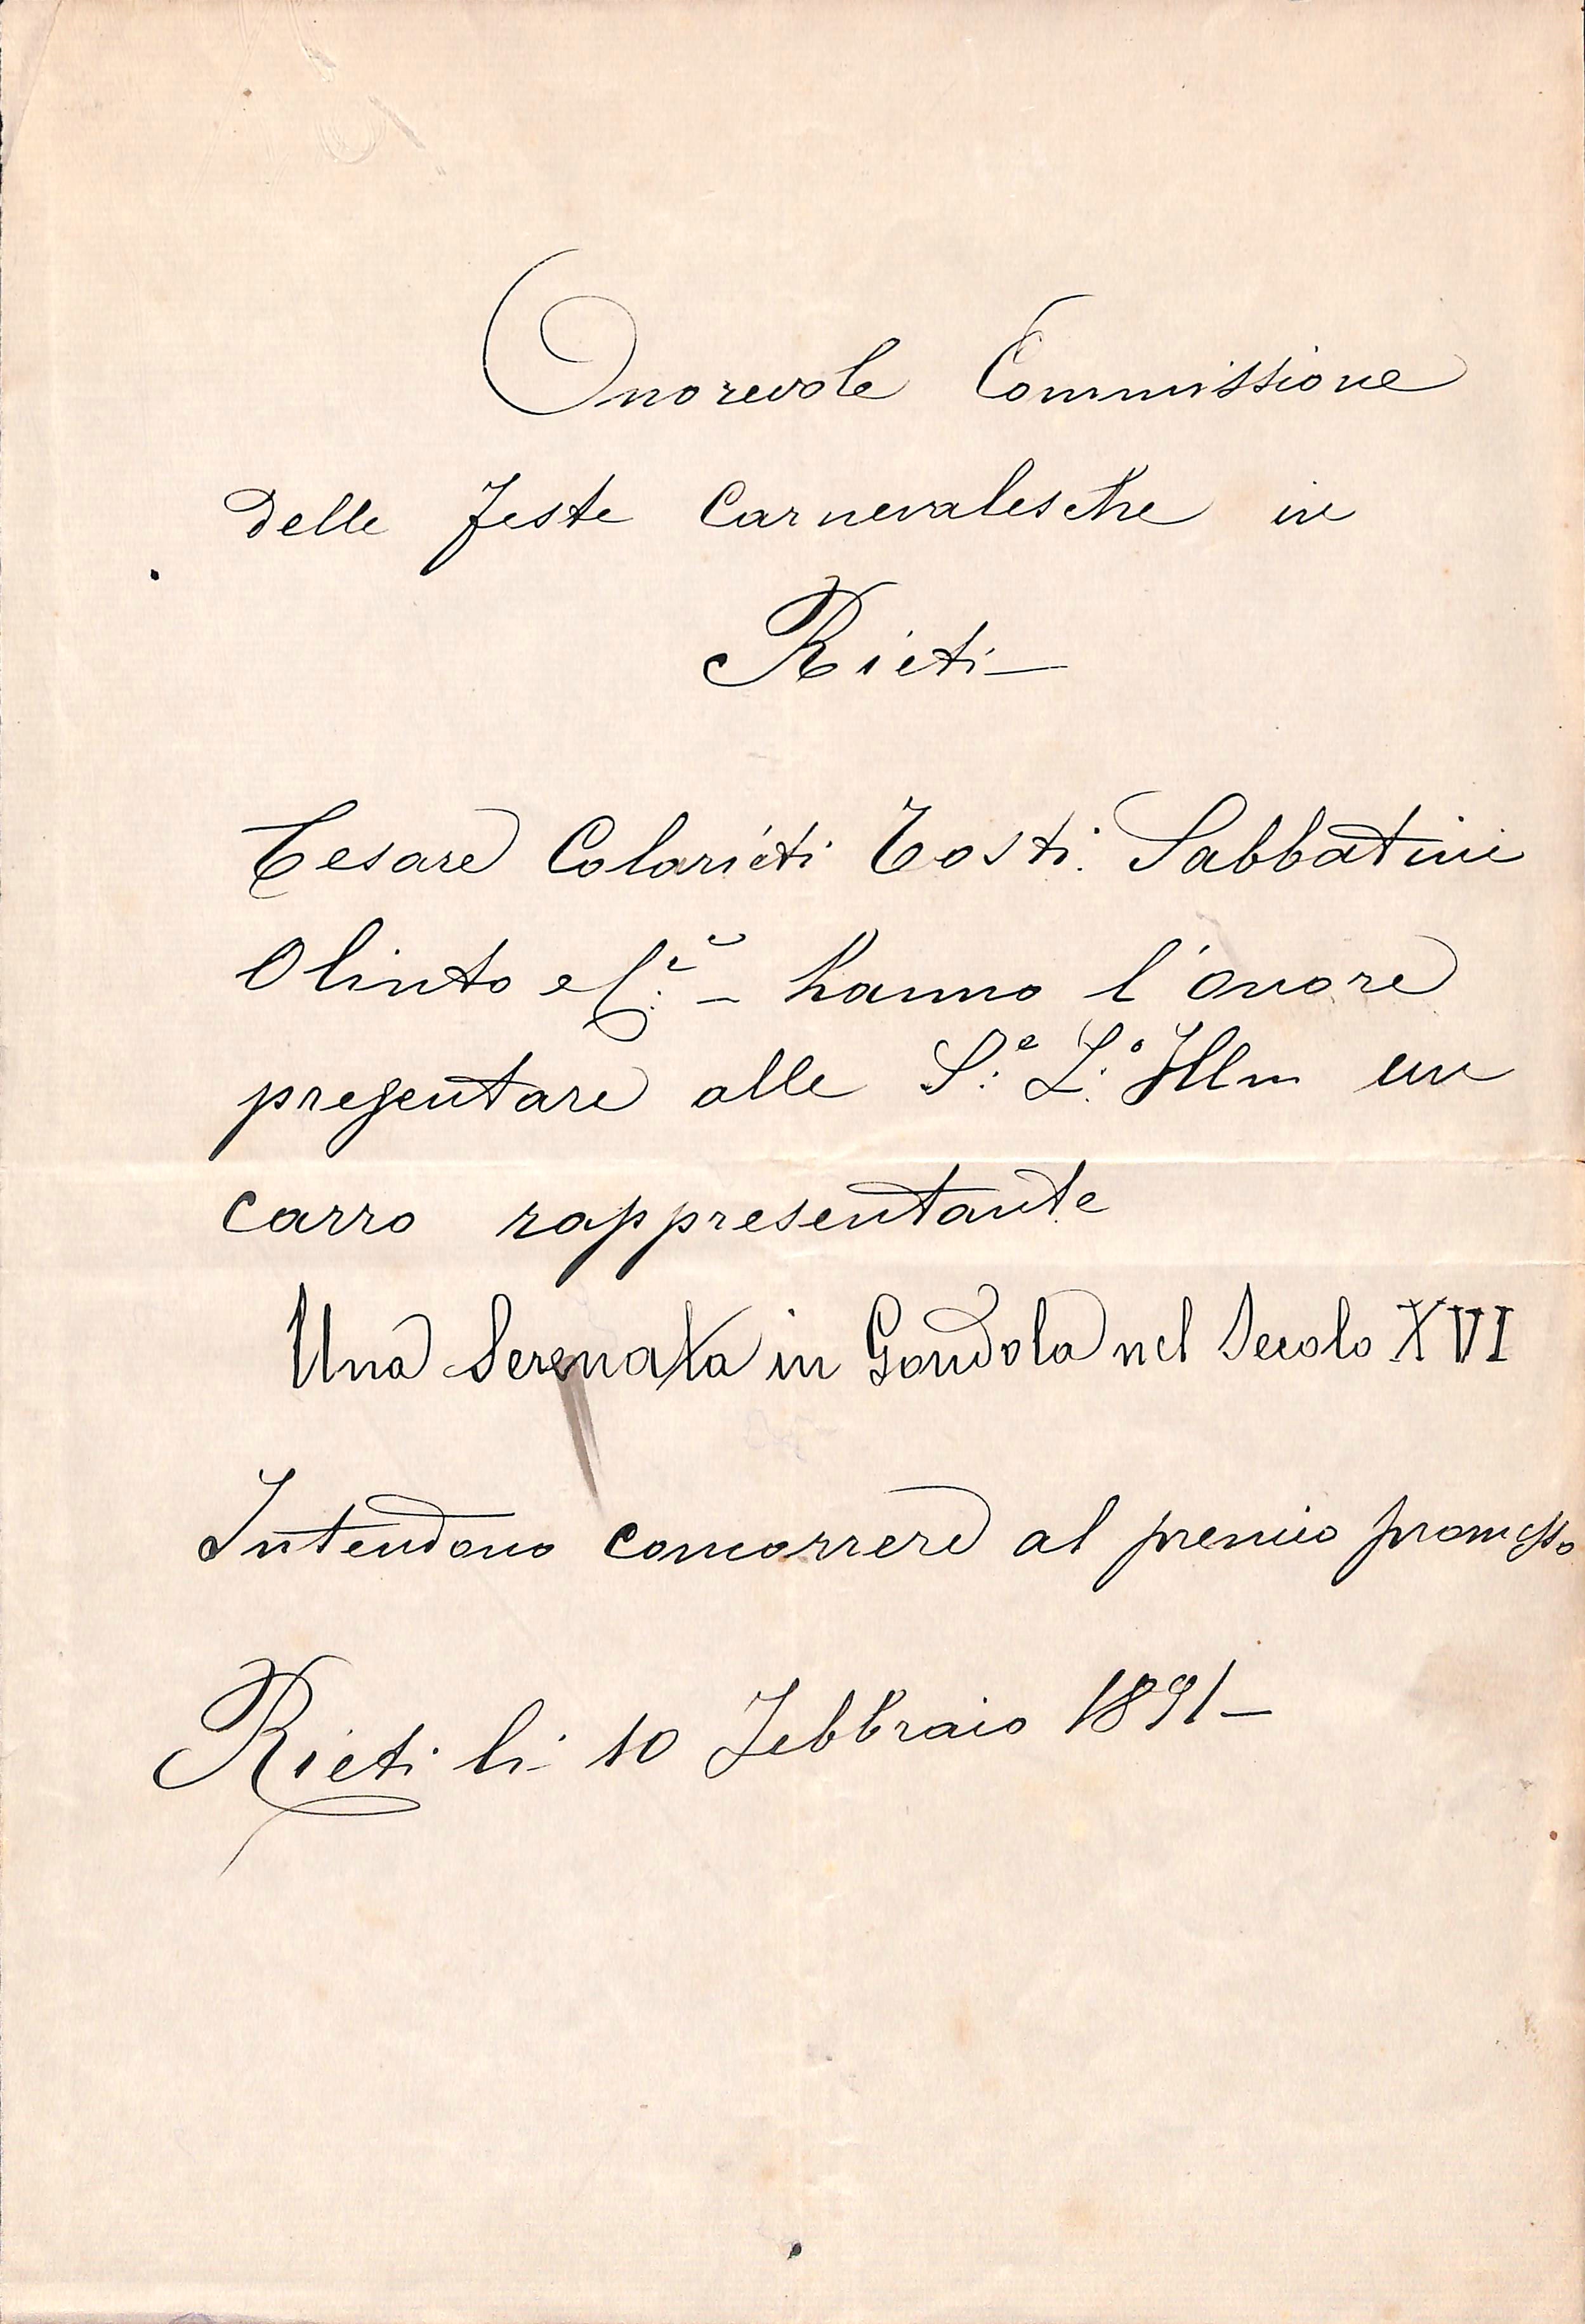 Onorevole Commissione
delle feste Carnevalesche in
Rieti—
Cesare Colarieti Tosti. Sabbatini
Olinto e C.i — hanno l'onore
presentare alle S.e L.o Illm un
carro rappresentante
Una Serenata in Gondola nel Secolo XVI
Intendono concorrere al premio promesso
Rieti li 10 Febbraio 1891—